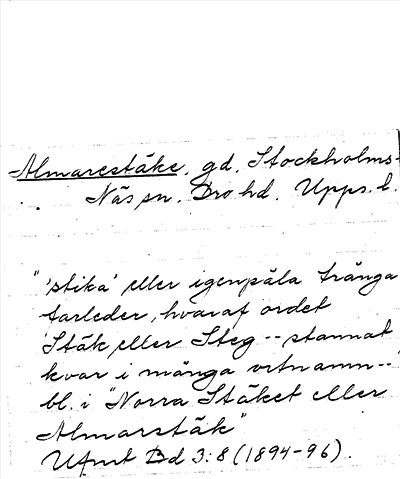 Almarestäke, gd, Stockholms-
Näs sn. Bro hd. Upps. l.
"'stika' eller igenpåla trånga
farleder, hvaraf ordet
'Stäk eller Steg -- stannat
kvar i många ortnamn --
bl. i "Norra Stäket eller
Almarstäk"
Ufmt Bd 3:8 (1894-96).